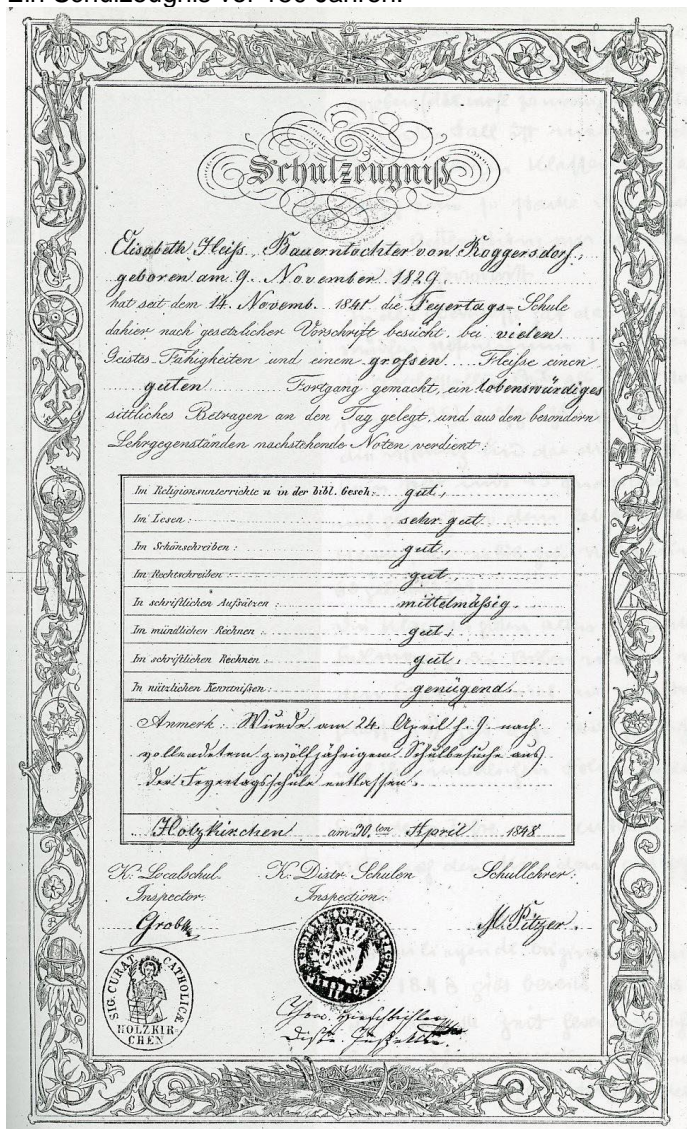 Ein Schulzeugnis vor 150 Jahren:
Schulzeugniß
Elisabeth Fleiß, Bauerntochter von Roggersdorf,
geboren am 9. November 1829,
hat seit dem 14. Novemb. 1841 die Feyertags-Schule
dahier nach gesetzlicher Vorschrift besucht, bei vielen
Geistes-Fähigkeiten und einem großen Fleiße einen
guten Fortgang gemacht, ein lobenswürdiges
sittliches Betragen an den Tag gelegt, und aus den besondern
Lehrgegenständen nachstehende Noten verdient:
Im Religionsunterrichte u in der bibl. Gesch: gut,
Im Lesen: sehr gut.
Im Schönschreiben: gut,
Im Rechtschreiben: gut
In schriftlichen Aufsätzen: mittelmäßig.
Im mündlichen Rechnen: gut,
Im schriftlichen Rechnen: gut,
In nützlichen Kenntnißen: genügend.
Anmerk: Wurde am 24. April h. J. nach
vollendetem zwölfjährigem Schulbesuche aus
der Feyertagsschule entlassen.
Holzkirchen am 30.ten April 1848
K. Localschul. K. Distr. Schulen Schullehrer.
Inspector. Inspection.
M. Pitzer.
SIG. CURAT CATHOLICÆ
HOLZKIR-
CHEN